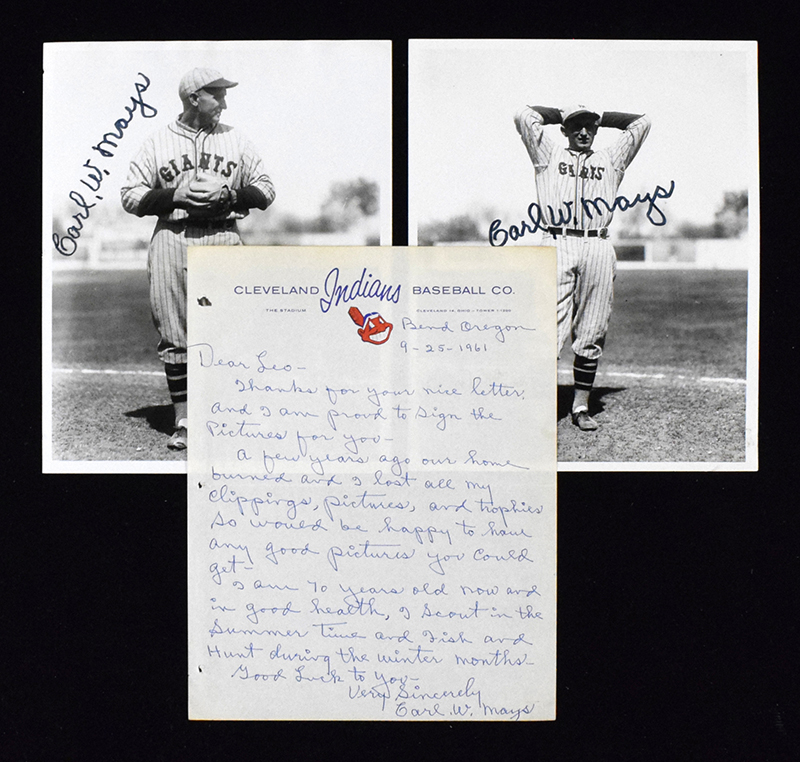 Earl. W. Mays
GIANTS
Earl. W. Mays
GIANTS
CLEVELAND Indians BASEBALL CO.
THE STADIUM
CLEVELAND 14, OHIO - TOWER 1-1200
Bend Oregon
9-25-1961
Dear Leo-
Thanks for your nice letter.
and I am proud to sign the
Pictures for you-
A few years ago our home
burned and I lost all my
Clippings, pictures, and trophies
So would be happy to have
any good pictures you could
get-
I am 70 years old now and
in good health, I Scout in the
Summer time and Fish and
Hunt during the winter months-
Good Luck to you-
Very Sincerely
Earl. W. Mays